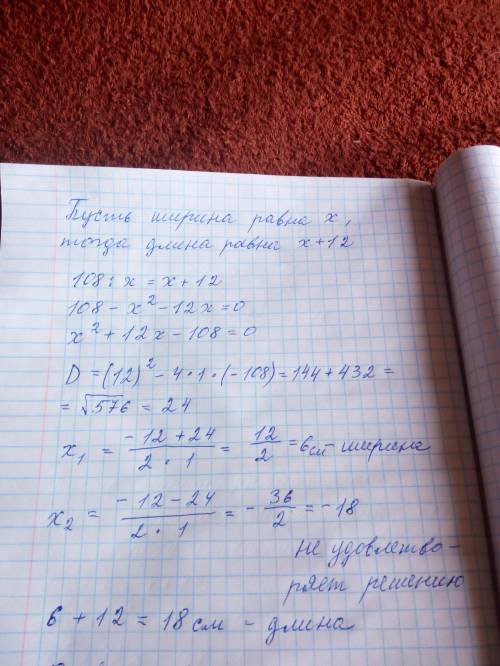 Пусть ширина равна x,
тогда длина равна x+12
108 : x = x + 12
108 - x² - 12x = 0
x² + 12x - 108 = 0
D = (12)² - 4 · 1 · (-108) = 144 + 432 =
= √576 = 24
x₁ = (-12 + 24)/(2 · 1) = 12/2 = 6 см - ширина
x₂ = (-12 - 24)/(2 · 1) = -36/2 = -18
не удовлетво-
ряет решению
6 + 12 = 18 см - длина